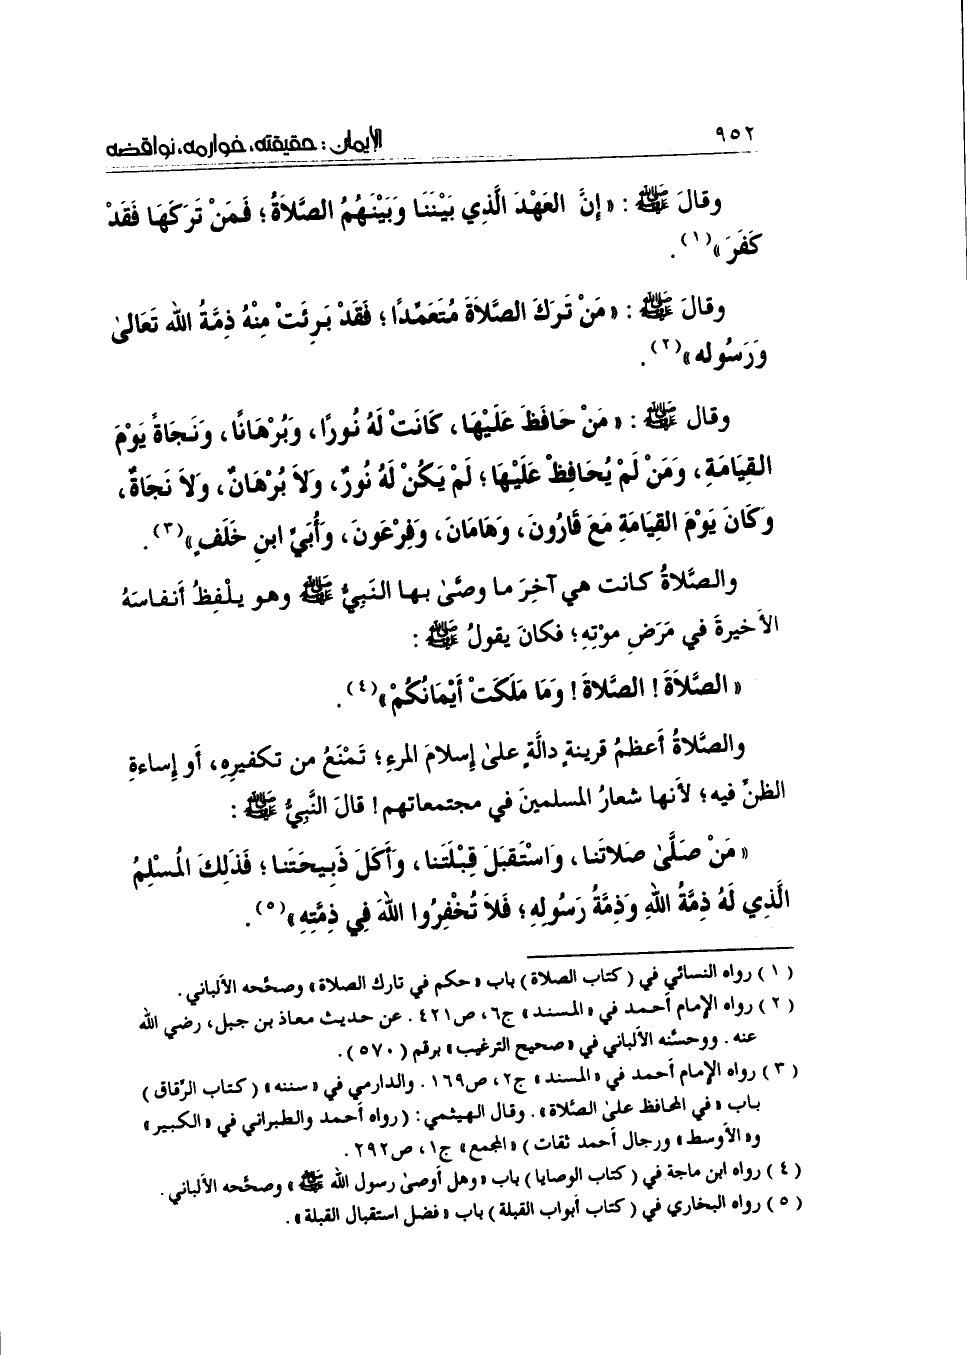 ٩٥٢ الإيمان : حقيقته، خوارمه، نواقضه
وقالَ ﷺ : « إنَّ العَهْدَ الَّذِي بَيْنَنَا وَبَيْنَهُمُ الصَّلاَةُ ؛ فَمَنْ تَرَكَهَا فَقَدْ
كَفَرَ »(١) .
وقالَ ﷺ : « مَنْ تَرَكَ الصَّلاَةَ مُتَعَمِّدًا ؛ فَقَدْ بَرِئَتْ مِنْهُ ذِمَّةُ الله تَعَالىٰ
وَرَسُوله »(٢) .
وقال ﷺ : « مَنْ حَافَظَ عَلَيْهَا ، كَانَتْ لَهُ نُورًا ، وَبُرْهَانًا ، وَنَجَاةً يَوْمَ
القِيَامَةِ ، وَمَنْ لَمْ يُحَافِظْ عَلَيْهَا ؛ لَمْ يَكُنْ لَهُ نُورٌ ، وَلاَ بُرْهَانٌ ، وَلاَ نَجَاةٌ ،
وَكَانَ يَوْمَ القِيَامَةِ مَعَ قَارُونَ ، وَهَامَانَ ، وَفِرْعَونَ ، وَأُبَيِّ ابنِ خَلَفٍ »(٣) .
والصَّلاةُ كانت هي آخِرَ ما وصَّىٰ بها النَبِيُّ ﷺ وهو يلْفِظُ أنفاسَهُ
الأخيرةَ في مَرَضِ موْتِهِ ؛ فكانَ يقولُ ﷺ :
« الصَّلاَةَ ! الصَّلاةَ ! وَمَا مَلَكَتْ أَيْمَانُكُمْ »(٤) .
والصَّلاةُ أعظمُ قرينةٍ دالَّةٍ علىٰ إسلامَ المرءِ ؛ تَمْنَعُ من تكفيرِهِ ، أو إساءةِ
الظنِّ فيه ؛ لأنها شعارُ المسلمينَ في مجتمعاتهم ! قالَ النَّبِيُّ ﷺ :
« مَنْ صَلَّىٰ صَلاتَنا ، وَاسْتَقبَلَ قِبْلَتَنا ، وَأَكَلَ ذَبِيحَتَنا ؛ فَذَلِكَ الْمُسْلِمُ
الَّذِي لَهُ ذِمَّةُ اللهِ وَذِمَّةُ رَسُولِهِ ؛ فَلاَ تُخْفِرُوا اللهَ فِي ذِمَّتِهِ »(٥) .
( ١ ) رواه النسائي في ( كتاب الصلاة ) باب « حكم في تارك الصلاة » وصحّحه الألباني .
( ٢ ) رواه الإمام أحمد في « المسند » ج٦ ، ص٤٢١ . عن حديث معاذ بن جبل ، رضي الله
عنه . ووحسّنه الألباني في « صحيح الترغيب » برقم ( ٥٧٠ ) .
( ٣ ) رواه الإمام أحمد في « المسند » ج٢ ، ص١٦٩ . والدارمي في « سننه » ( كتاب الرِّقاق )
باب « في المحافظ علىٰ الصّلاة » . وقال الهيثمي : ( رواه أحمد والطبراني في « الكبير »
و« الأوسط » ورجال أحمد ثقات ) « المجمع » ج١ ، ص٢٩٢ .
( ٤ ) رواه ابن ماجة في ( كتاب الوصايا ) باب « وهل أوصىٰ رسول الله ﷺ » وصحّحه الألباني .
( ٥ ) رواه البخاري في ( كتاب أبواب القبلة ) باب « فضل استقبال القبلة » .